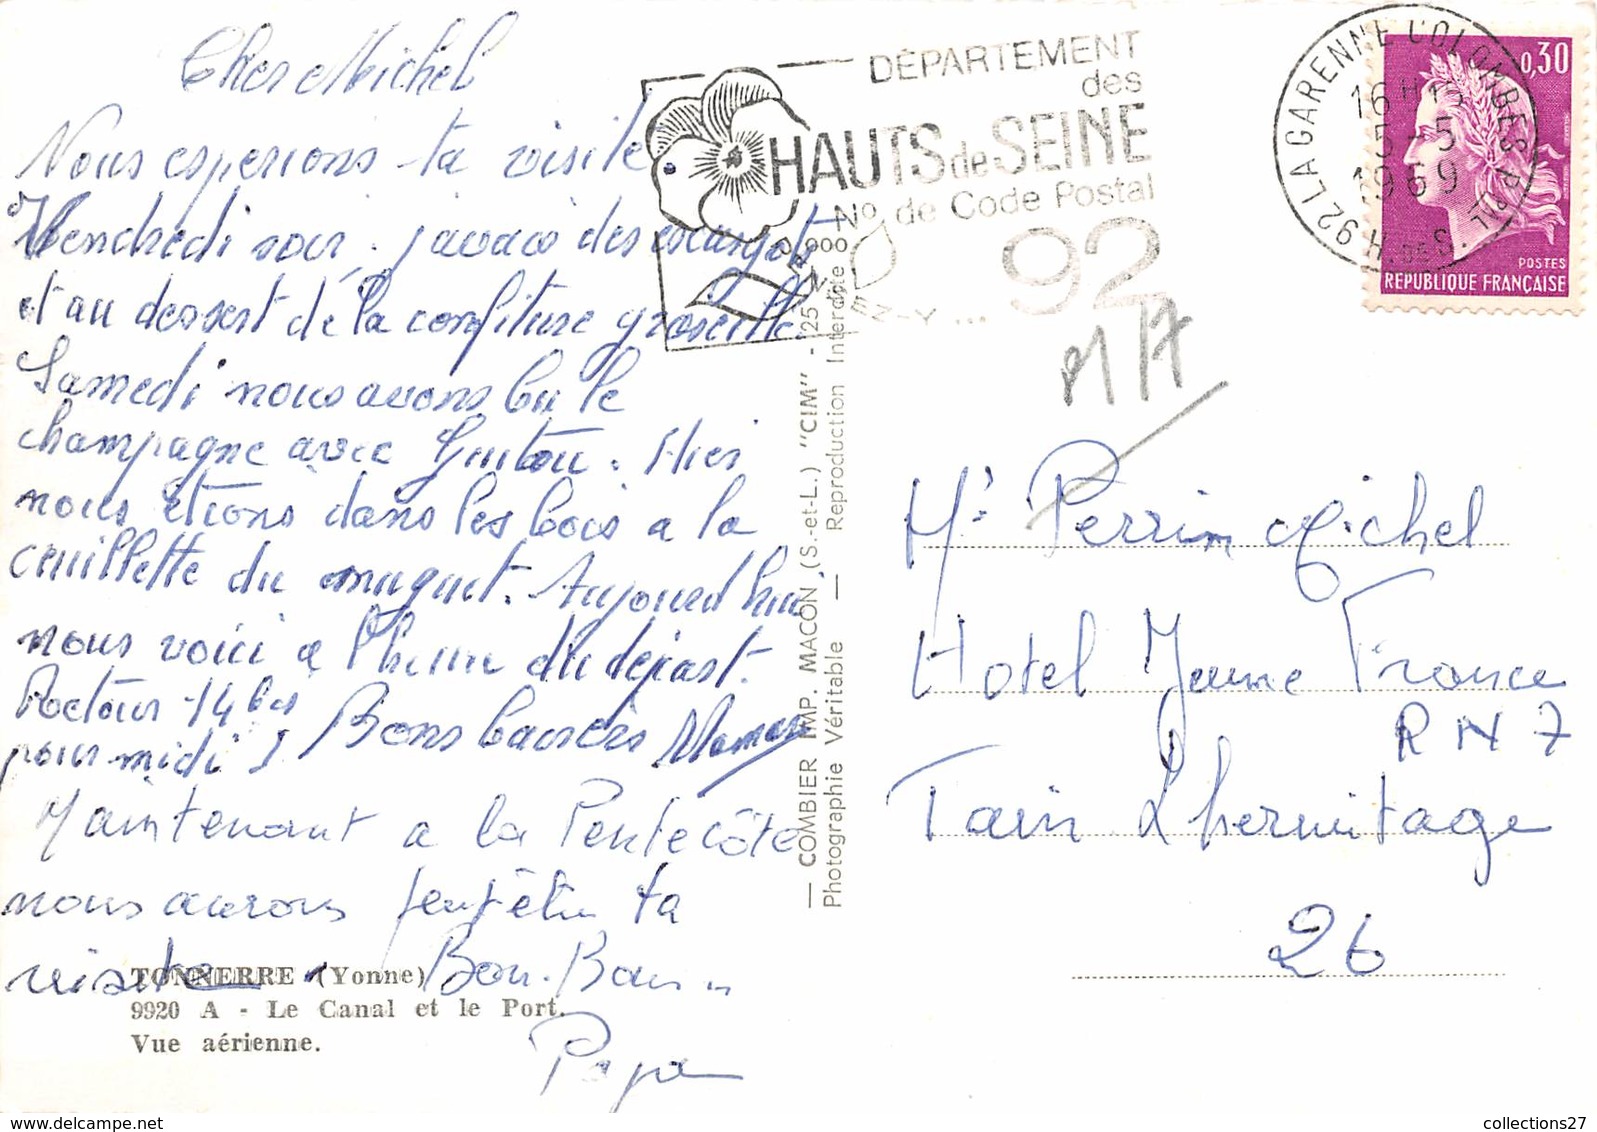 Cher Michel
Nous esperions ta visite
Vendredi soir. j'avais des escargots
et au dessert de la confiture groseille
Samedi nous avons bu le
champagne avec Guitou. Hier
nous étions dans les bois a la
cueillette du muguet. Aujourd'hui
nous voici a l'heure du départ.
14
pour midi
Bons baisers Maman
Maintenant a la Pentecôte
nous aurons peut être ta
visite Bon
Papa
TONNERRE (Yonne)
9920 A - Le Canal et le Port.
Vue aérienne.
— COMBIER IMP. MACON (S.-et-L.) "CIM" -
Photographie Véritable — Reproduction Interdite
DÉPARTEMENT
des
HAUTS de SEINE
No de Code Postal
92
92 LA GARENNE COLOMBES PPAL
H. DES S.
16 H 15
5-5
1969
0,30
POSTES
REPUBLIQUE FRANÇAISE
Mr Perrin Michel
Hotel Jeune France
R N 7
Tain L'hermitage
26
collections27